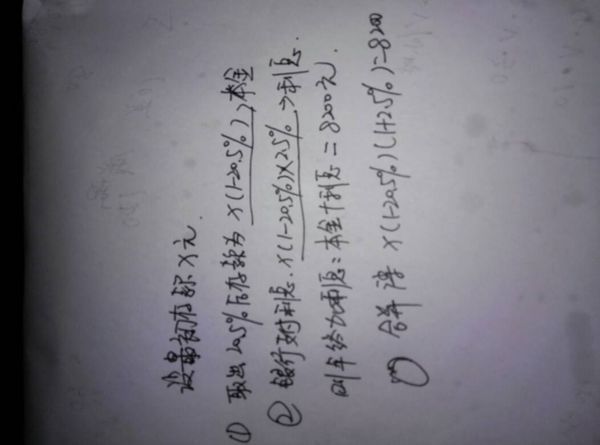 设最初存款x元.
① 取出20.5%后存款为 x(1-20.5%) → 本金
② 银行支付利息. x(1-20.5%)×2.5% → 利息.
则年终加利息: 本金+利息 = 8200元.
合并得 x(1-20.5%)(1+2.5%)=8200